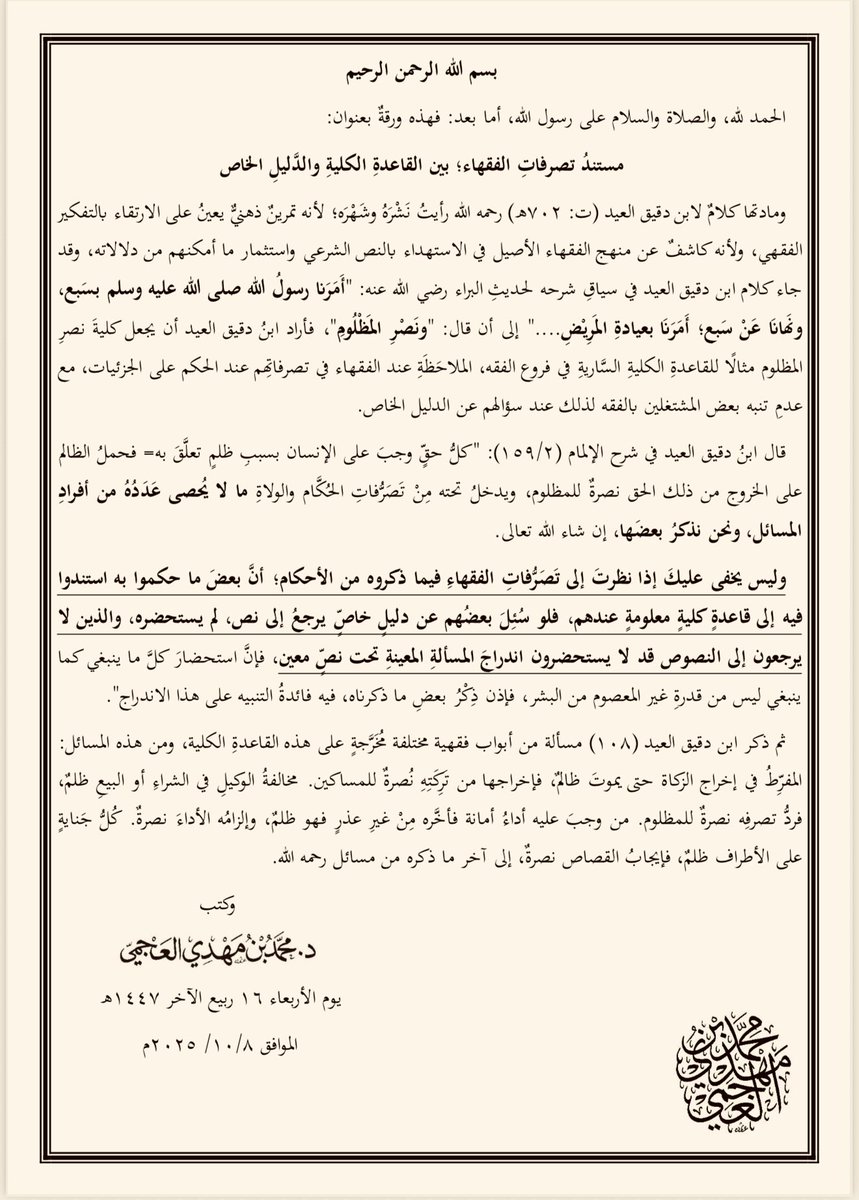 بسم الله الرحمن الرحيم
الحمد لله، والصلاة والسلام على رسول الله، أما بعد: فهذه ورقةٌ بعنوان:
مستندُ تصرفاتِ الفقهاء؛ بين القاعدةِ الكليةِ والدَّليلِ الخاص
ومادتها كلامٌ لابن دقيق العيد (ت: ٧٠٢هـ) رحمه الله رأيتُ نَشْرَهُ وشَهْرَه؛ لأنه تمرينٌ ذهنيٌّ يعينُ على الارتقاء بالتفكير
الفقهي، ولأنه كاشفٌ عن منهج الفقهاء الأصيل في الاستهداء بالنص الشرعي واستثمار ما أمكنهم من دلالاته، وقد
جاء كلام ابن دقيق العيد في سياقِ شرحه لحديثِ البراء رضي الله عنه: "أَمَرَنا رسولُ الله صلى الله عليه وسلم بسَبع،
ونَهَانَا عَنْ سَبع؛ أَمَرَنَا بعيادةِ المَرِيْضِ...." إلى أن قال: "ونَصْرِ المَظْلُومِ"، فأراد ابنُ دقيق العيد أن يجعل كليةَ نصرِ
المظلوم مثالًا للقاعدةِ الكليةِ السَّاريةِ في فروع الفقه، الملاحَظَةِ عند الفقهاء في تصرفاتِهم عند الحكم على الجزئيات، مع
عدمِ تنبه بعض المشتغلين بالفقه لذلك عند سؤالهم عن الدليل الخاص.
قال ابنُ دقيق العيد في شرح الإلمام (١٥٩/٢): "كلُّ حقٍّ وجبَ على الإنسان بسببِ ظلمٍ تعلَّقَ به= فحملُ الظالم
على الخروج من ذلك الحق نصرةٌ للمظلوم، ويدخلُ تحته مِنْ تَصَرُّفاتِ الحُكَّام والولاةِ ما لا يُحصى عَدَدُهُ من أفرادِ
المسائل، ونحن نذكرُ بعضَها، إن شاء الله تعالى.
وليس يخفى عليكَ إذا نظرتَ إلى تَصَرُّفاتِ الفقهاءِ فيما ذكروه من الأحكام؛ أنَّ بعضَ ما حكموا به استندوا
فيه إلى قاعدةٍ كليةٍ معلومةٍ عندهم، فلو سُئِلَ بعضُهم عن دليلٍ خاصٍّ يرجعُ إلى نص، لم يستحضره، والذين لا
يرجعون إلى النصوص قد لا يستحضرون اندراجَ المسألةِ المعينةِ تحت نصٍّ معين، فإنَّ استحضارَ كلَّ ما ينبغي كما
ينبغي ليس من قدرةِ غير المعصوم من البشر، فإذن ذِكْرُ بعضِ ما ذكرناه، فيه فائدةُ التنبيه على هذا الاندراج".
ثم ذكر ابن دقيق العيد (١٠٨) مسألة من أبواب فقهية مختلفة مُخَرَّجةٍ على هذه القاعدةِ الكلية، ومن هذه المسائل:
المفرِّطُ في إخراج الزكاة حتى يموتَ ظالمٌ، فإخراجها من تَرِكَتِهِ نُصرةٌ للمساكين. مخالفةُ الوكيلِ في الشراءِ أو البيعِ ظلمٌ،
فردُّ تصرفِه نصرةٌ للمظلوم. من وجبَ عليه أداءُ أمانة فأخَّره مِنْ غيرِ عذرٍ فهو ظلمٌ، وإلزامُه الأداءَ نصرةٌ. كُلُّ جَنايةٍ
على الأطراف ظلمٌ، فإيجابُ القصاص نصرةٌ، إلى آخر ما ذكره من مسائل رحمه الله.
وكتب
د. محمَّد بْنُ مَهْدِي العَجْمِيّ
يوم الأربعاء ١٦ ربيع الآخر ١٤٤٧هـ
الموافق ١٠/٨/ ٢٠٢٥م
محمد بن
مهدي
العجمي